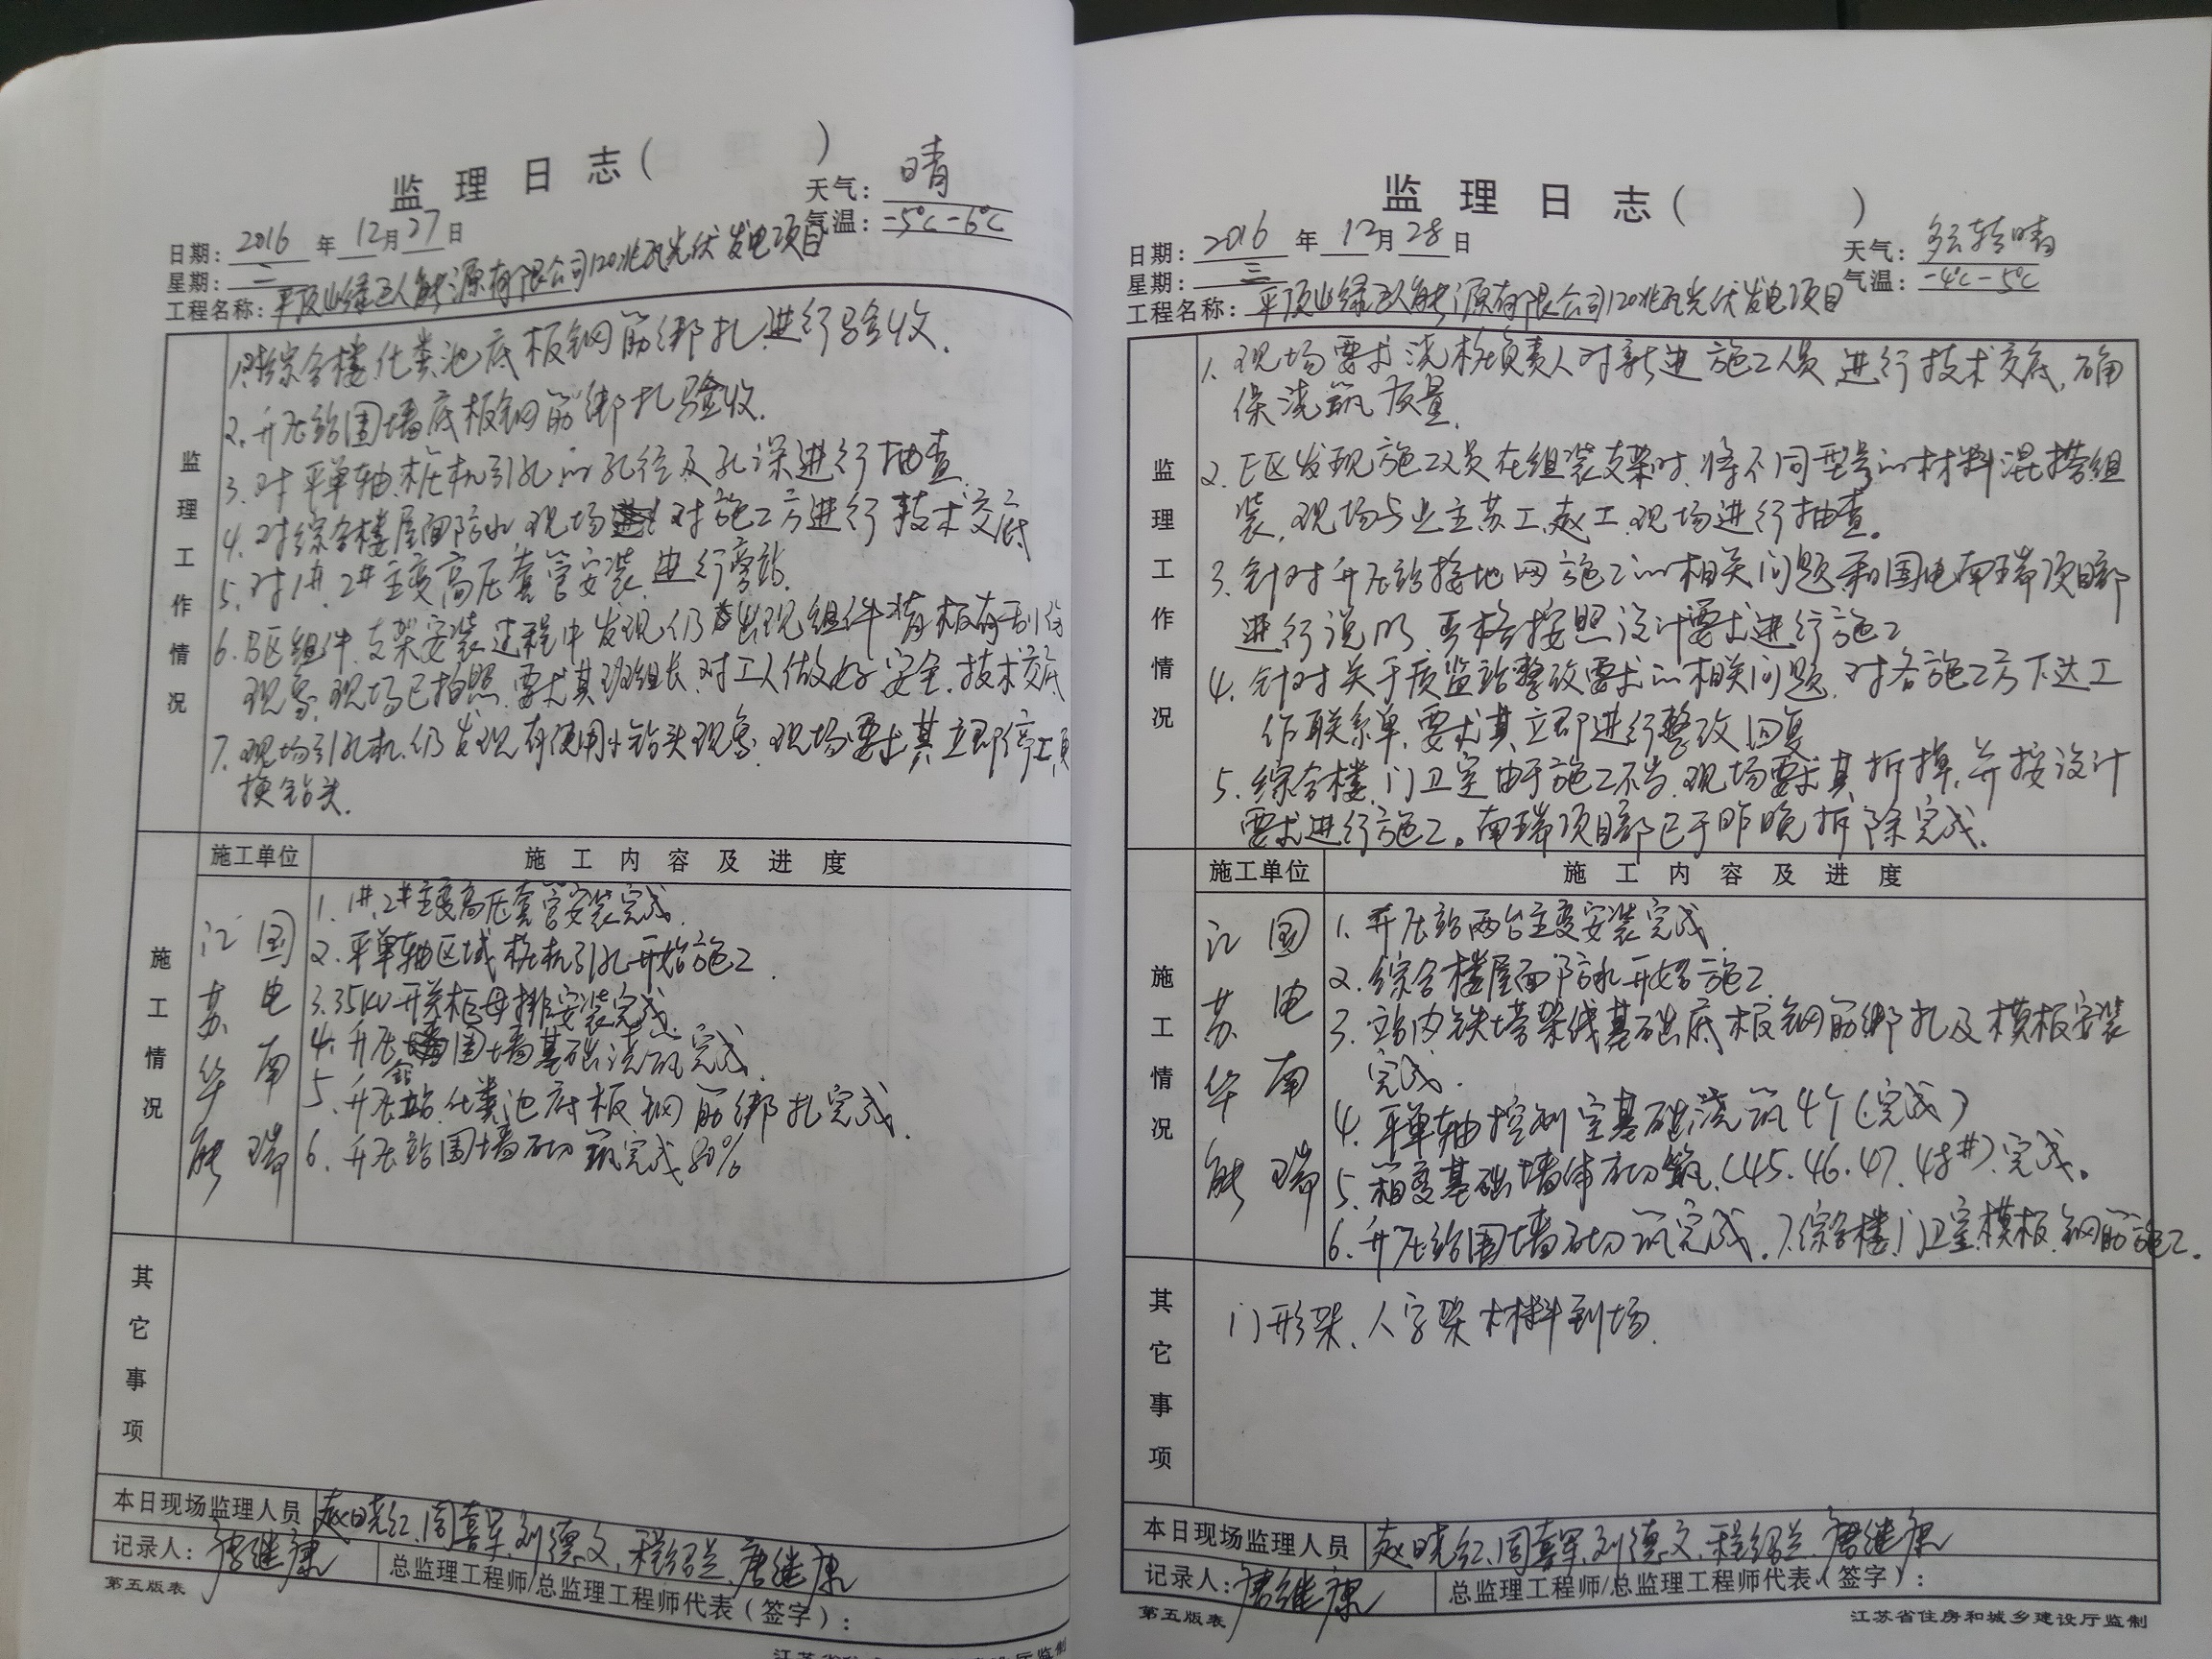 监 理 日 志 ( )
日期: 2016 年 12 月 27 日
天气: 晴
星期: 二
气温: -5℃-6℃
工程名称: 平顶山绿巨人能源有限公司120兆瓦光伏发电项目
监理工作情况
1.对综合楼化粪池底板钢筋绑扎进行验收.
2.升压站围墙底板钢筋绑扎验收.
3.对平单轴桩机引孔的孔径及孔深进行抽查.
4.对综合楼屋面防水现场对施工方进行技术交底
5.对1#.2#主变高压套管安装进行旁站.
6.B区组件.支架安装过程中发现仍出现组件背板有刮伤
现象,现场已拍照.要求其班组长.对工人做好安全.技术交底
7.现场引孔机.仍发现有使用小钻头现象.现场要求其立即停工,更
换钻头.
施工单位
施 工 内 容 及 进 度
施工情况
江苏华能
国电南瑞
1. 1#,2#主变高压套管安装完成.
2.平单轴区域桩机引孔开始施工.
3.35KV开关柜母排安装完成.
4.升压站围墙基础浇筑完成.
5.升压站化粪池底板钢筋绑扎完成.
6.升压站围墙砌筑完成80%
其它事项
本日现场监理人员 赵晓红、周喜军、刘德文、程绍兰、唐继康
记录人: 唐继康
总监理工程师/总监理工程师代表(签字):
第五版表
监 理 日 志 ( )
日期: 2016 年 12 月 28 日
天气: 多云转晴
星期: 三
气温: -4℃-5℃
工程名称: 平顶山绿巨人能源有限公司120兆瓦光伏发电项目
监理工作情况
1.现场要求浇桩负责人对新进施工人员进行技术交底,确
保浇筑质量.
2.E区发现施工人员在组装支架时.将不同型号的材料混搭组
装,现场与业主苏工.赵工.现场进行抽查。
3.针对升压站接地网施工的相关问题和国电南瑞项目部
进行说明 严格按照设计要求进行施工
4.针对关于质监站整改要求的相关问题.对各施工方下达工
作联系单.要求其立即进行整改回复
5.综合楼.门卫室由于施工不当.现场要求其拆掉.并按设计
要求进行施工。南瑞项目部已于昨晚拆除完成.
施工单位
施 工 内 容 及 进 度
施工情况
江苏华能
国电南瑞
1.升压站两台主变安装完成.
2.综合楼屋面防水开始施工.
3.站内铁塔架线基础底板钢筋绑扎及模板安装
完成.
4.平单轴控制室基础浇筑4个(完成)
5.箱变基础墙体砌筑.(45.46.47.48#).完成。
6.升压站围墙砌筑完成. 7.综合楼.门卫室.模板.钢筋施工.
其它事项
门形架、人字架材料到场.
本日现场监理人员 赵晓红、周喜军、刘德文、程绍兰、唐继康
记录人: 唐继康
总监理工程师/总监理工程师代表(签字):
第五版表
江苏省住房和城乡建设厅监制